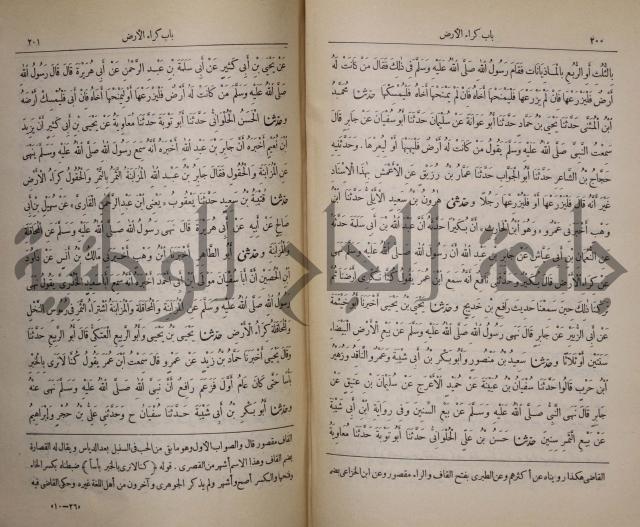 ٢٠٠
باب كراء الأرض
بالثلث أو الربع بالماذيانات فقام رسول الله صلى الله عليه وسلم فى ذلك فقال من كانت له
أرض فليزرعها فان لم يزرعها فليمنحها أخاه فان لم يمنحها أخاه فليمسكها حدثنا محمد
ابن المثنى حدثنا يحيى بن حماد حدثنا أبو عوانة عن سليمان حدثنا أبو سفيان عن جابر قال
سمعت النبى صلى الله عليه وسلم يقول من كانت له أرض فليهبها أو ليعرها. وحدثنيه
حجاج بن الشاعر حدثنا أبو الجواب حدثنا عمار بن رزيق عن الأعمش بهذا الاسناد
غير أنه قال فليزرعها أو فليزرعها رجلا وحدثنى هرون بن سعيد الأيلى حدثنا ابن
وهب أخبرنى عمرو وهو ابن الحارث أن بكيرا حدثه أن عبد الله بن أبى سلمة حدثه
عن النعمان بن أبى عياش عن جابر بن عبد الله أن رسول الله صلى الله عليه وسلم نهى
عن كراء الأرض قال بكير وحدثنى نافع أنه سمع ابن عمر يقول كنا نكرى أرضنا ثم
تركنا ذلك حين سمعنا حديث رافع بن خديج وحدثنا يحيى بن يحيى أخبرنا أبو خيثمة
عن أبى الزبير عن جابر قال نهى رسول الله صلى الله عليه وسلم عن بيع الأرض البيضاء
سنتين أو ثلاثا وحدثنا سعيد بن منصور وأبو بكر بن أبى شيبة وعمرو الناقد وزهير
ابن حرب قالوا حدثنا سفيان بن عيينة عن حميد الأعرج عن سليمان بن عتيق عن
جابر قال نهى النبى صلى الله عليه وسلم عن بيع السنين وفى رواية ابن أبى شيبة
عن بيع الثمر سنين حدثنا حسن بن على الحلوانى حدثنا أبو توبة حدثنا معاوية
القاضى هكذا رويناه عن أكثرهم وعن الطبرى بفتح القاف والراء مقصور وعن ابن الخزاعى بضم
باب كراء الأرض
٢٠١
عن يحيى بن أبى كثير عن أبى سلمة بن عبد الرحمن عن أبى هريرة قال قال رسول الله
صلى الله عليه وسلم من كانت له أرض فليزرعها أو ليمنحها أخاه فان أبى فليمسك أرضه
وحدثنا الحسن الحلوانى حدثنا أبو توبة حدثنا معاوية عن يحيى بن أبى كثير أن يزيد
ابن نعيم أخبره أن جابر بن عبد الله أخبره أنه سمع رسول الله صلى الله عليه وسلم ينهى
عن المزابنة والحقول فقال جابر بن عبد الله المزابنة الثمر بالتمر والحقول كراء الأرض
حدثنا قتيبة بن سعيد حدثنا يعقوب «يعنى ابن عبد الرحمن القارى» عن سهيل بن أبى
صالح عن أبيه عن أبى هريرة قال نهى رسول الله صلى الله عليه وسلم عن المحاقلة
والمزابنة وحدثنى أبو الطاهر أخبرنا ابن وهب أخبرنى مالك بن أنس عن داود
ابن الحصين أن أبا سفيان مولى ابن أبى أحمد أخبره أنه سمع أبا سعيد الخدرى يقول نهى
رسول الله صلى الله عليه وسلم عن المزابنة والمحاقلة والمزابنة اشتراء الثمر فى رءوس النخل
والمحاقلة كراء الأرض حدثنا يحيى بن يحيى وأبو الربيع العتكى قال أبو الربيع حدثنا
وقال يحيى أخبرنا حماد بن زيد عن عمرو قال سمعت ابن عمر يقول كنا لا نرى بالخبر
بأسا حتى كان عام أول فزعم رافع أن نبى الله صلى الله عليه وسلم نهى عنه
وحدثنا أبو بكر بن أبى شيبة حدثنا سفيان ح وحدثنى على بن حجر وابراهيم
القاف مقصور قال والصواب الأول وهو ما بقى من الحب فى السنبل بعد الدياس ويقال له القصارة
بضم القاف وهذا الاسم أشهر من القصرى. قوله ﴿كنا لا نرى بالخبر بأسا﴾ ضبطناه بكسر الخاء
وفتحها والكسر أصح وأشهر ولم يذكر الجوهرى وآخرون من أهل اللغة غيره وحكى القاضى فيه
«٢٦-١٠»
جامعة النجاح الوطنية